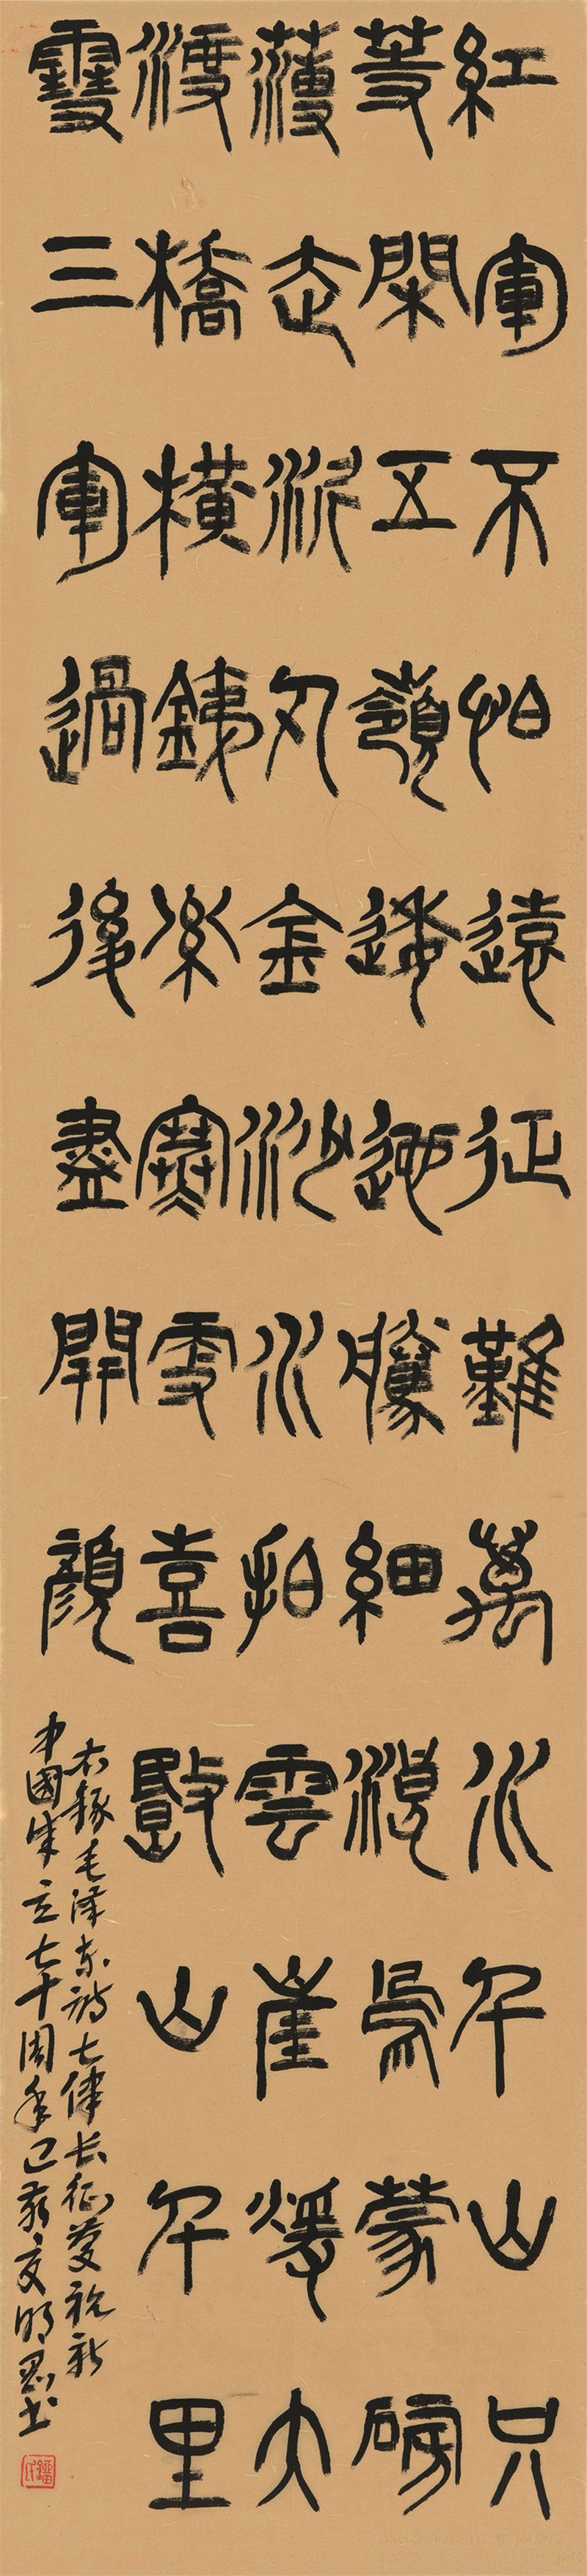 紅軍不怕遠征難萬水千山只
等閑五嶺逶迤騰細浪烏蒙磅
薄走泥丸金沙水拍雲崖暖大
渡橋橫鐵索寒更喜岷山千里
雪三軍過後盡開顏
右錄毛泽东詩七律長征慶祝新
中國成立七十周年己亥夏明書